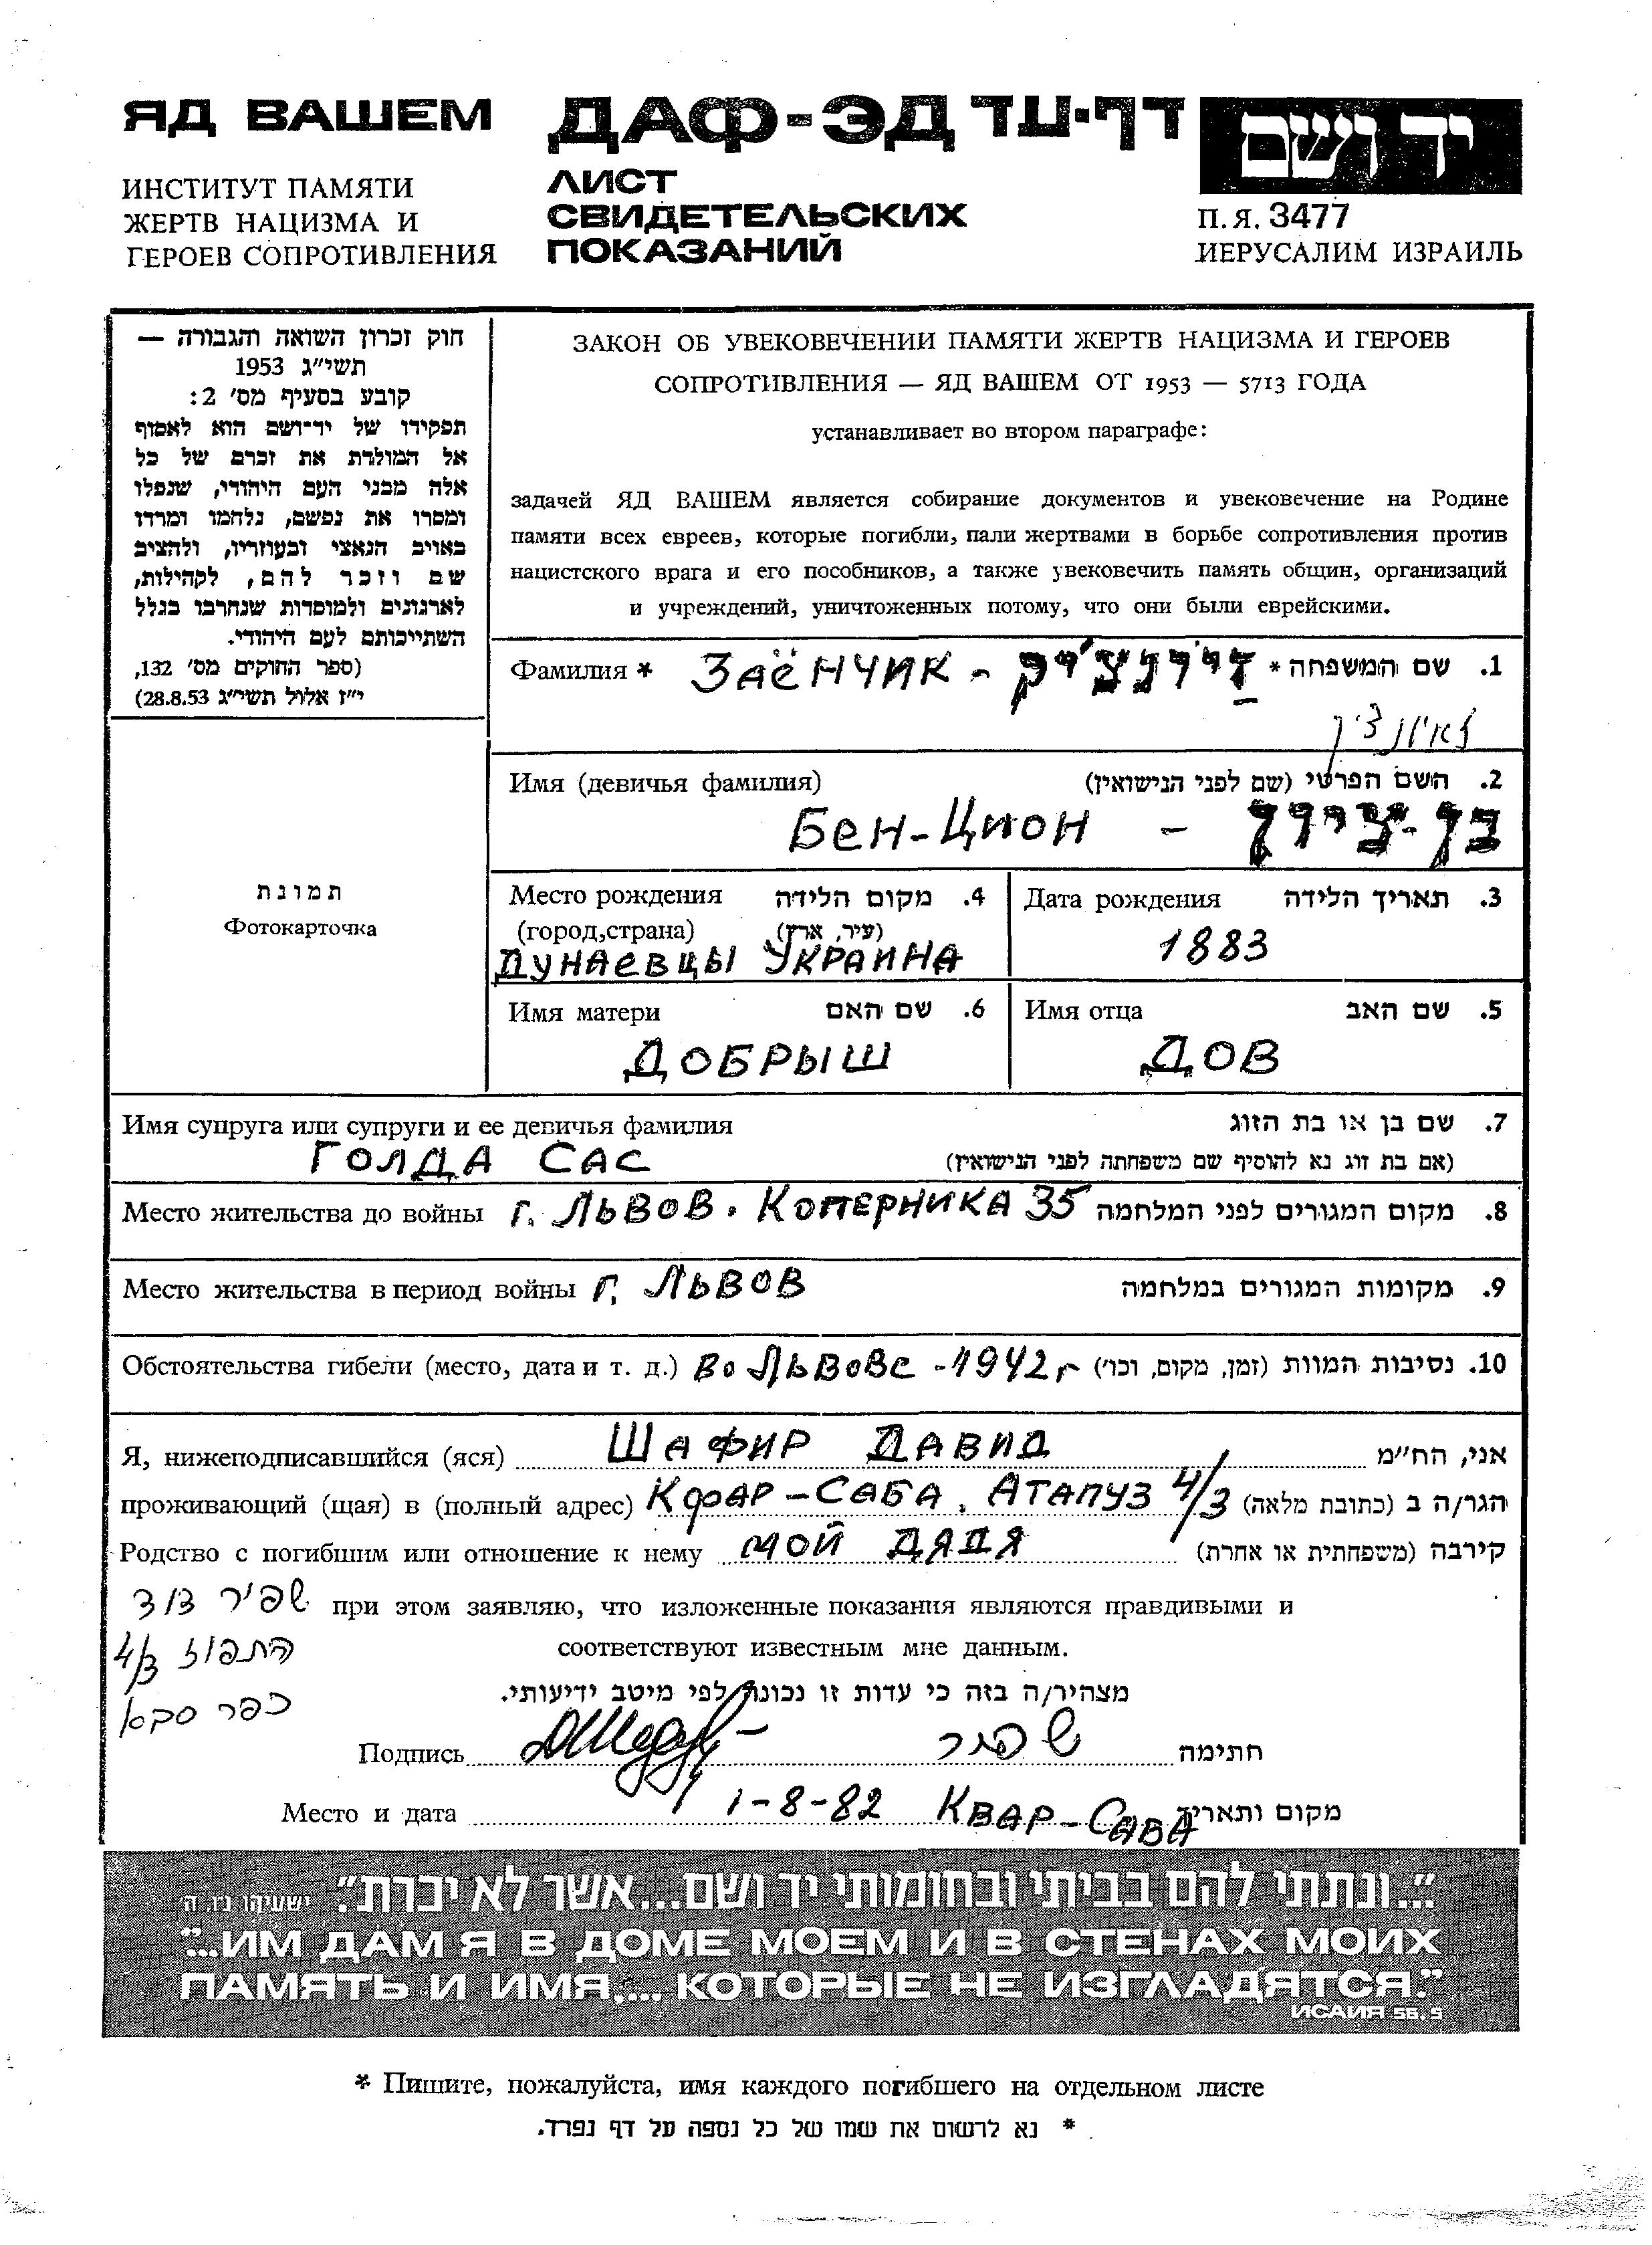 ЯД ВАШЕМ
ИНСТИТУТ ПАМЯТИ
ЖЕРТВ НАЦИЗМА И
ГЕРОЕВ СОПРОТИВЛЕНИЯ
ДАФ-ЭД דף-עד
ЛИСТ
СВИДЕТЕЛЬСКИХ
ПОКАЗАНИЙ
יד ושם
П.Я. 3477
ИЕРУСАЛИМ ИЗРАИЛЬ
חוק זכרון השואה והגבורה —
תשי״ג 1953
קובע בסעיף מס׳ 2:
תפקידו של יד־ושם הוא לאסוף
אל המולדת את זכרם של כל
אלה מבני העם היהודי, שנפלו
ומסרו את נפשם, נלחמו ומרדו
באויב הנאצי ובעוזריו, ולהציב
שם וזכר להם, לקהילות,
לארגונים ולמוסדות שנחרבו בגלל
השתייכותם לעם היהודי.
(ספר החוקים מס׳ 132,
י״ז אלול תשי״ג 28.8.53)
ЗАКОН ОБ УВЕКОВЕЧЕНИИ ПАМЯТИ ЖЕРТВ НАЦИЗМА И ГЕРОЕВ
СОПРОТИВЛЕНИЯ — ЯД ВАШЕМ ОТ 1953 — 5713 ГОДА
устанавливает во втором параграфе:
задачей ЯД ВАШЕМ является собирание документов и увековечение на Родине
памяти всех евреев, которые погибли, пали жертвами в борьбе сопротивления против
нацистского врага и его пособников, а также увековечить память общин, организаций
и учреждений, уничтоженных потому, что они были еврейскими.
Фамилия * ЗАЁНЧИК - 1. שם המשפחה *
זאיונצ׳יק
Имя (девичья фамилия) 2. השם הפרטי (שם לפני הנישואין)
БЕН-ЦИОН - בן-ציון
תמונת
Фотокарточка
Место рождения 4. מקום הלידה
(город,страна) (עיר, ארץ)
ДУНАЕВЦЫ УКРАИНА
Дата рождения 3. תאריך הלידה
1883
Имя матери 6. שם האם
ДОБРЫШ
Имя отца 5. שם האב
ДОВ
Имя супруга или супруги и ее девичья фамилия 7. שם בן או בת הזוג
ГОЛДА САС (אם בת זוג נא להוסיף שם משפחתה לפני הנישואין)
Место жительства до войны г. ЛЬВОВ. КОПЕРНИКА 35 8. מקום המגורים לפני המלחמה
Место жительства в период войны г. ЛЬВОВ 9. מקומות המגורים במלחמה
Обстоятельства гибели (место, дата и т. д.) Во ЛЬВОВЕ - 1942 г 10. נסיבות המוות (זמן, מקום, וכו׳)
Я, нижеподписавшийся (яся) ШАФИР ДАВИД אני, הח״מ
проживающий (щая) в (полный адрес) КФАР-САБА, АТАПУЗ 4/3 הגר/ה ב (כתובת מלאה)
Родство с погибшим или отношение к нему МОЙ ДЯДЯ קירבה (משפחתית או אחרת)
שפיר דוד
התפוז 4/3
כפר סבא
при этом заявляю, что изложенные показания являются правдивыми и
соответствуют известным мне данным.
מצהיר/ה בזה כי עדות זו נכונה לפי מיטב ידיעותי.
Подпись שפיר חתימה
Место и дата 1-8-82 КВАР-САБА מקום ותאריך
״...ונתתי להם בביתי ובחומותי יד ושם...אשר לא יכרת״. ישעיהו נ״ו ה׳
"...ИМ ДАМ Я В ДОМЕ МОЕМ И В СТЕНАХ МОИХ
ПАМЯТЬ И ИМЯ,... КОТОРЫЕ НЕ ИЗГЛАДЯТСЯ."
ИСАИЯ 56.5
* Пишите, пожалуйста, имя каждого погибшего на отдельном листе
* נא לרשום את שמו של כל נספה על דף נפרד.